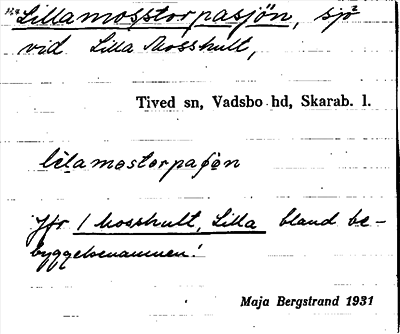 Lillamosstorpasjön, sjö
vid Lilla Mosshult,
Tived sn, Vadsbo hd, Skarab. l.
lilamostorpaʃøn
Jfr / Mosshult, Lilla bland be-
byggelsenamnen!
Maja Bergstrand 1931